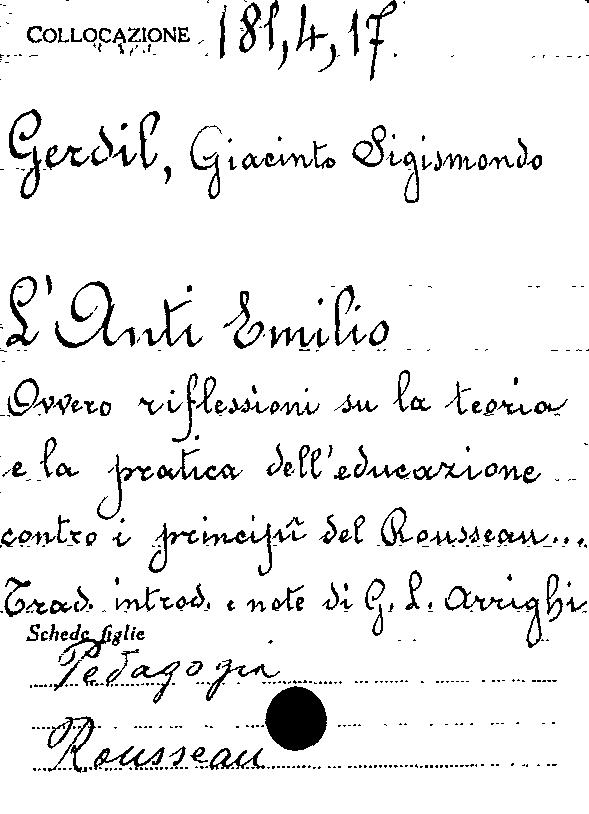 COLLOCAZIONE 181,4,17.
Gerdil, Giacinto Sigismondo
L'Anti Emilio
Ovvero riflessioni su la teoria
e la pratica dell'educazione
contro i principii del Rousseau...
Trad. introd. e note di G. L. Arrighi
Schede figlie
Pedagogia
Rousseau